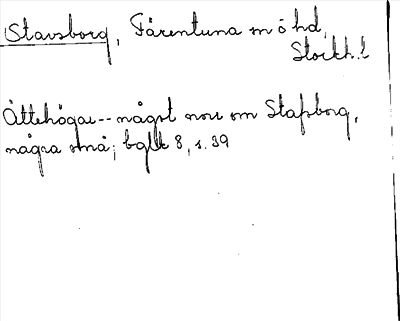 Stavsborg, Färentuna sn ö hd,
Stockh. l
Ättehögar -- något norr om Stafsborg,
några små; bgllt 8, s. 39